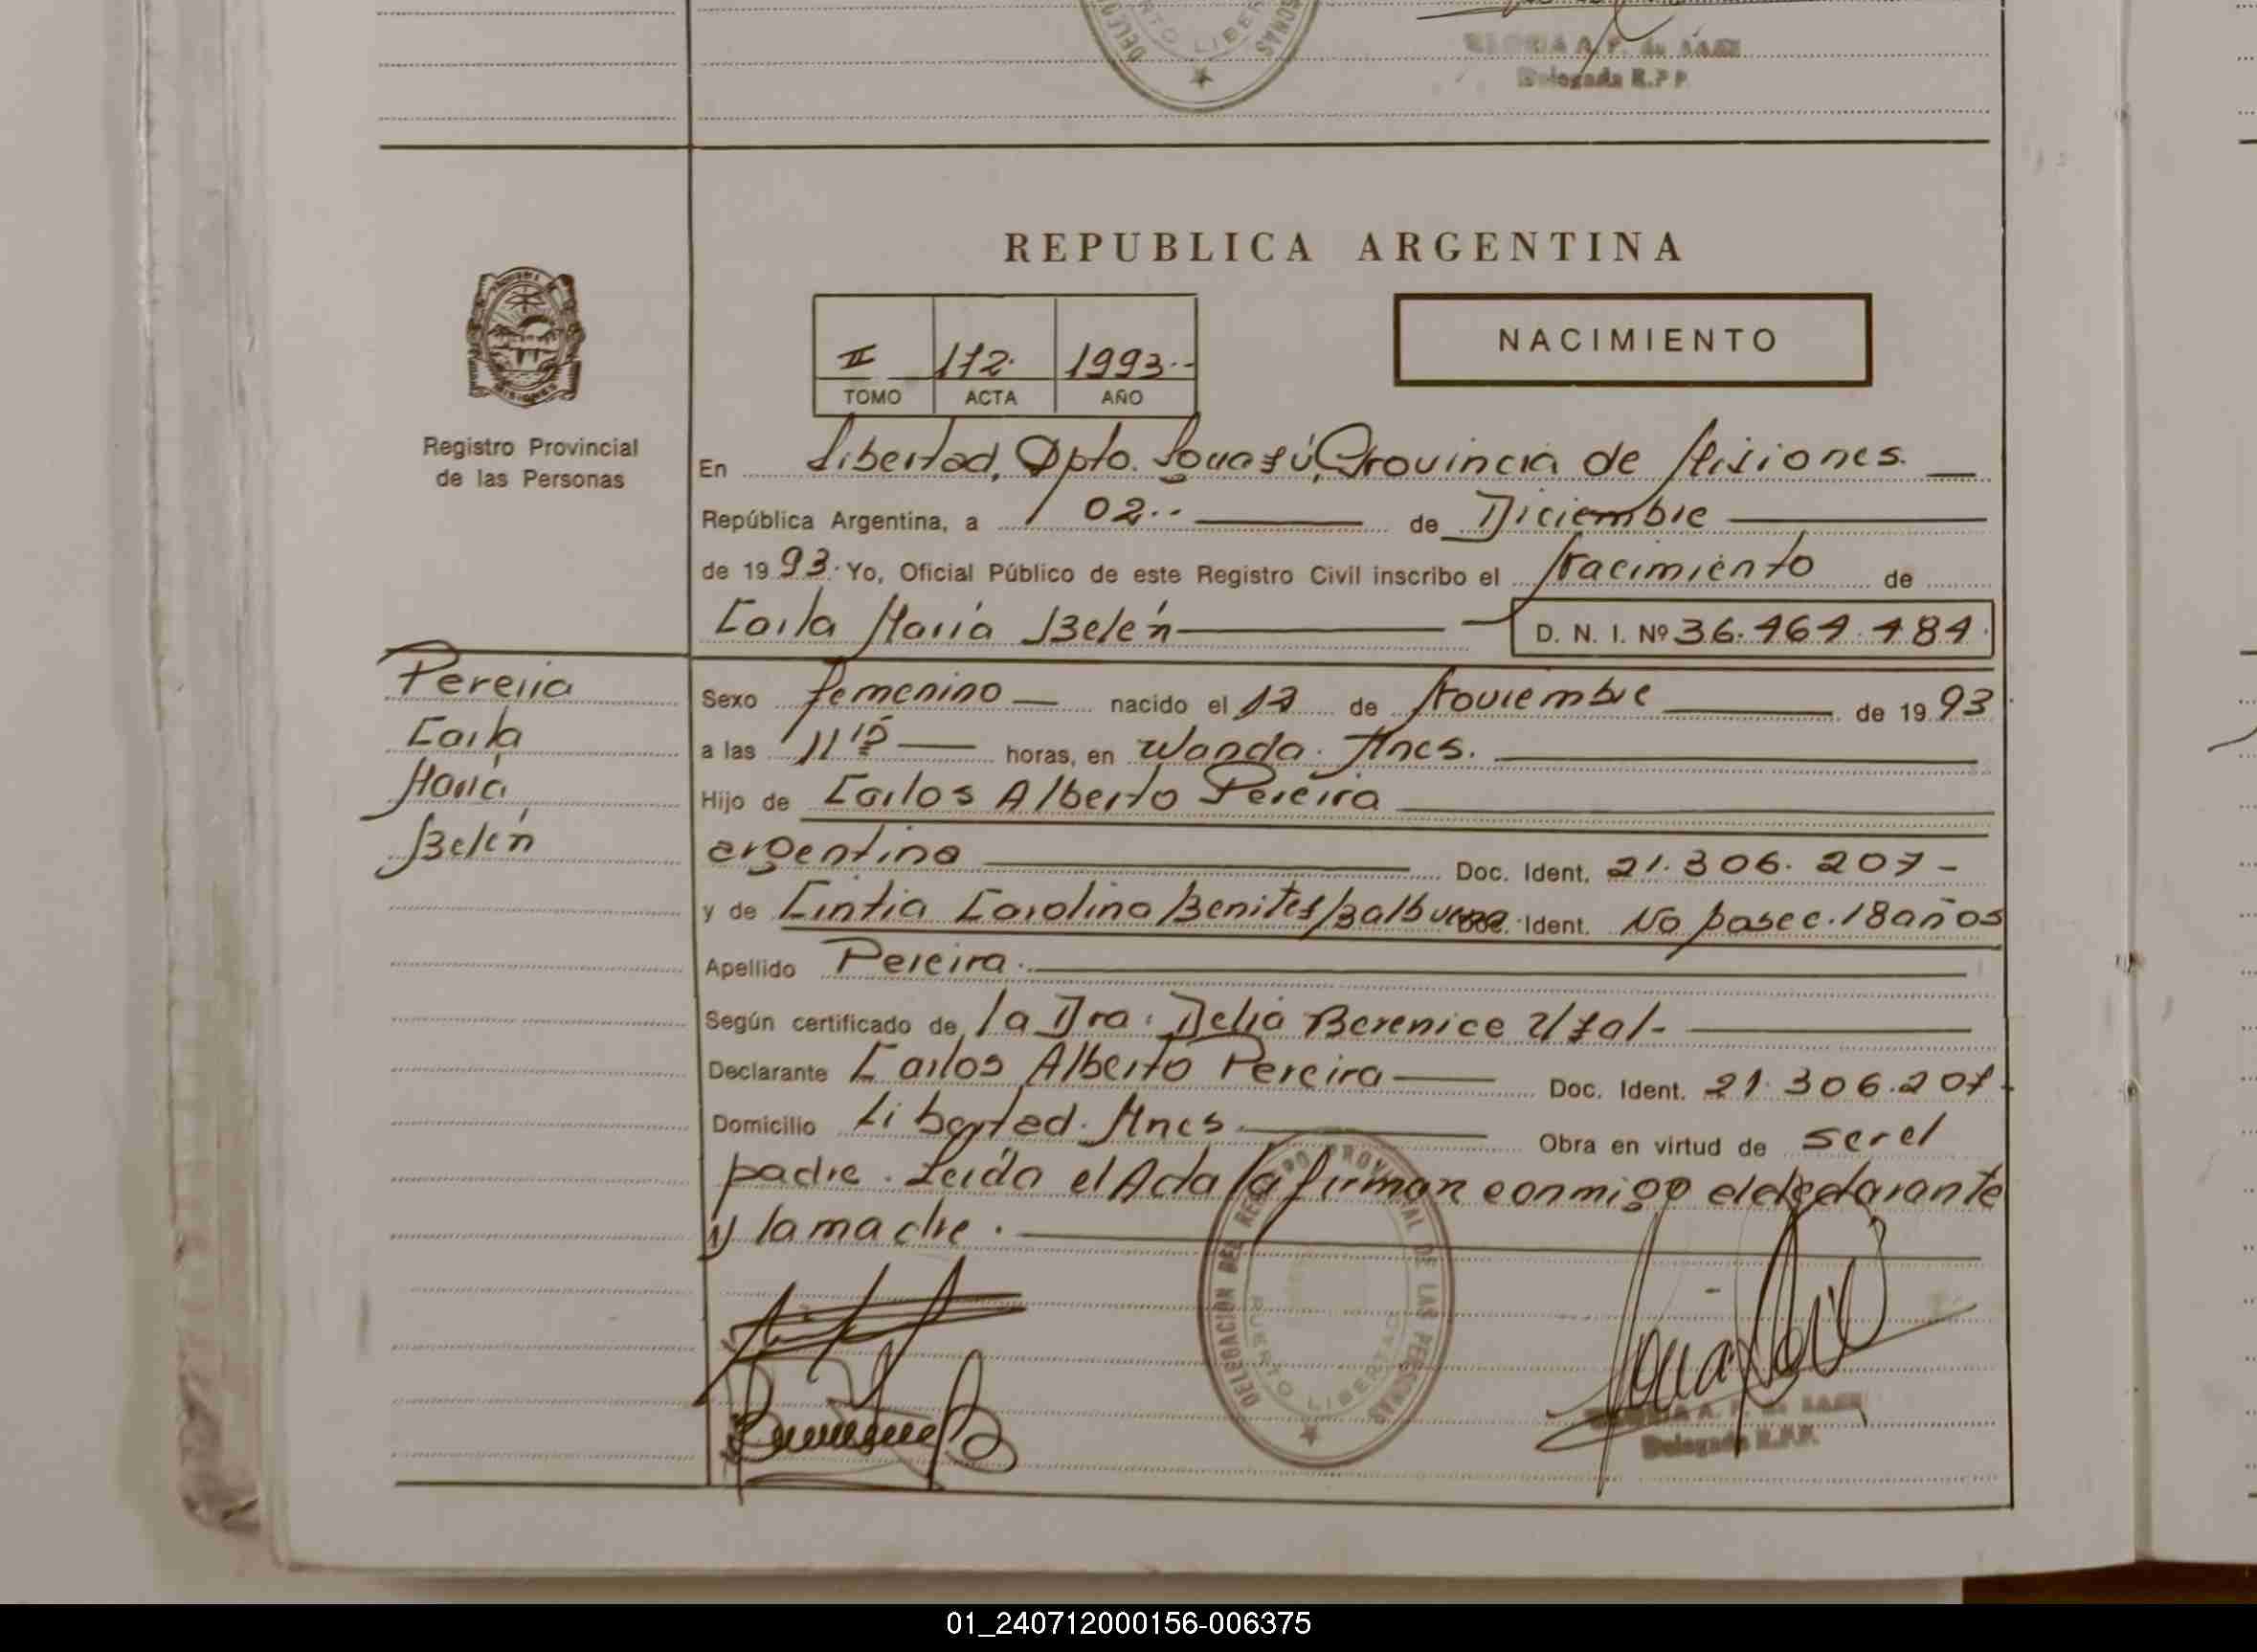 DELEG
RTO LIBER
SONAS
GLORIA A. F. de
Delegada R.P.P.
REPUBLICA ARGENTINA
II 112. 1993..
TOMO ACTA AÑO
NACIMIENTO
Registro Provincial
de las Personas
En Libertad, Dpto. Iguazú, Provincia de Misiones.
República Argentina, a 02.. de Diciembre
de 19 93. Yo, Oficial Público de este Registro Civil inscribo el Nacimiento de
Carla María Belén D. N. I. Nº 36.464.484.
Pereira
Carla
María
Belén
Sexo femenino nacido el de Noviembre de 19 93
a las 11 15 horas, en Wanda. Mnes.
Hijo de Carlos Alberto Pereira
argentino Doc. Ident. 21.306.207-
y de Cintia Carolina Benites Balbuena Doc. Ident. No posee. 18 años
Apellido Pereira.
Según certificado de la Dra. Delia Berenice
Declarante Carlos Alberto Pereira Doc. Ident. 21.306.207-
Domicilio Libertad. Mnes. Obra en virtud de ser el
padre. Leída el Acta la firman conmigo el declarante
y la madre.
DELEGACION DEL REGISTRO PROVINCIAL DE LAS PERSONAS
PUERTO LIBERTAD
GLORIA A. F. de
Delegada R.P.P.
01_240712000156-006375